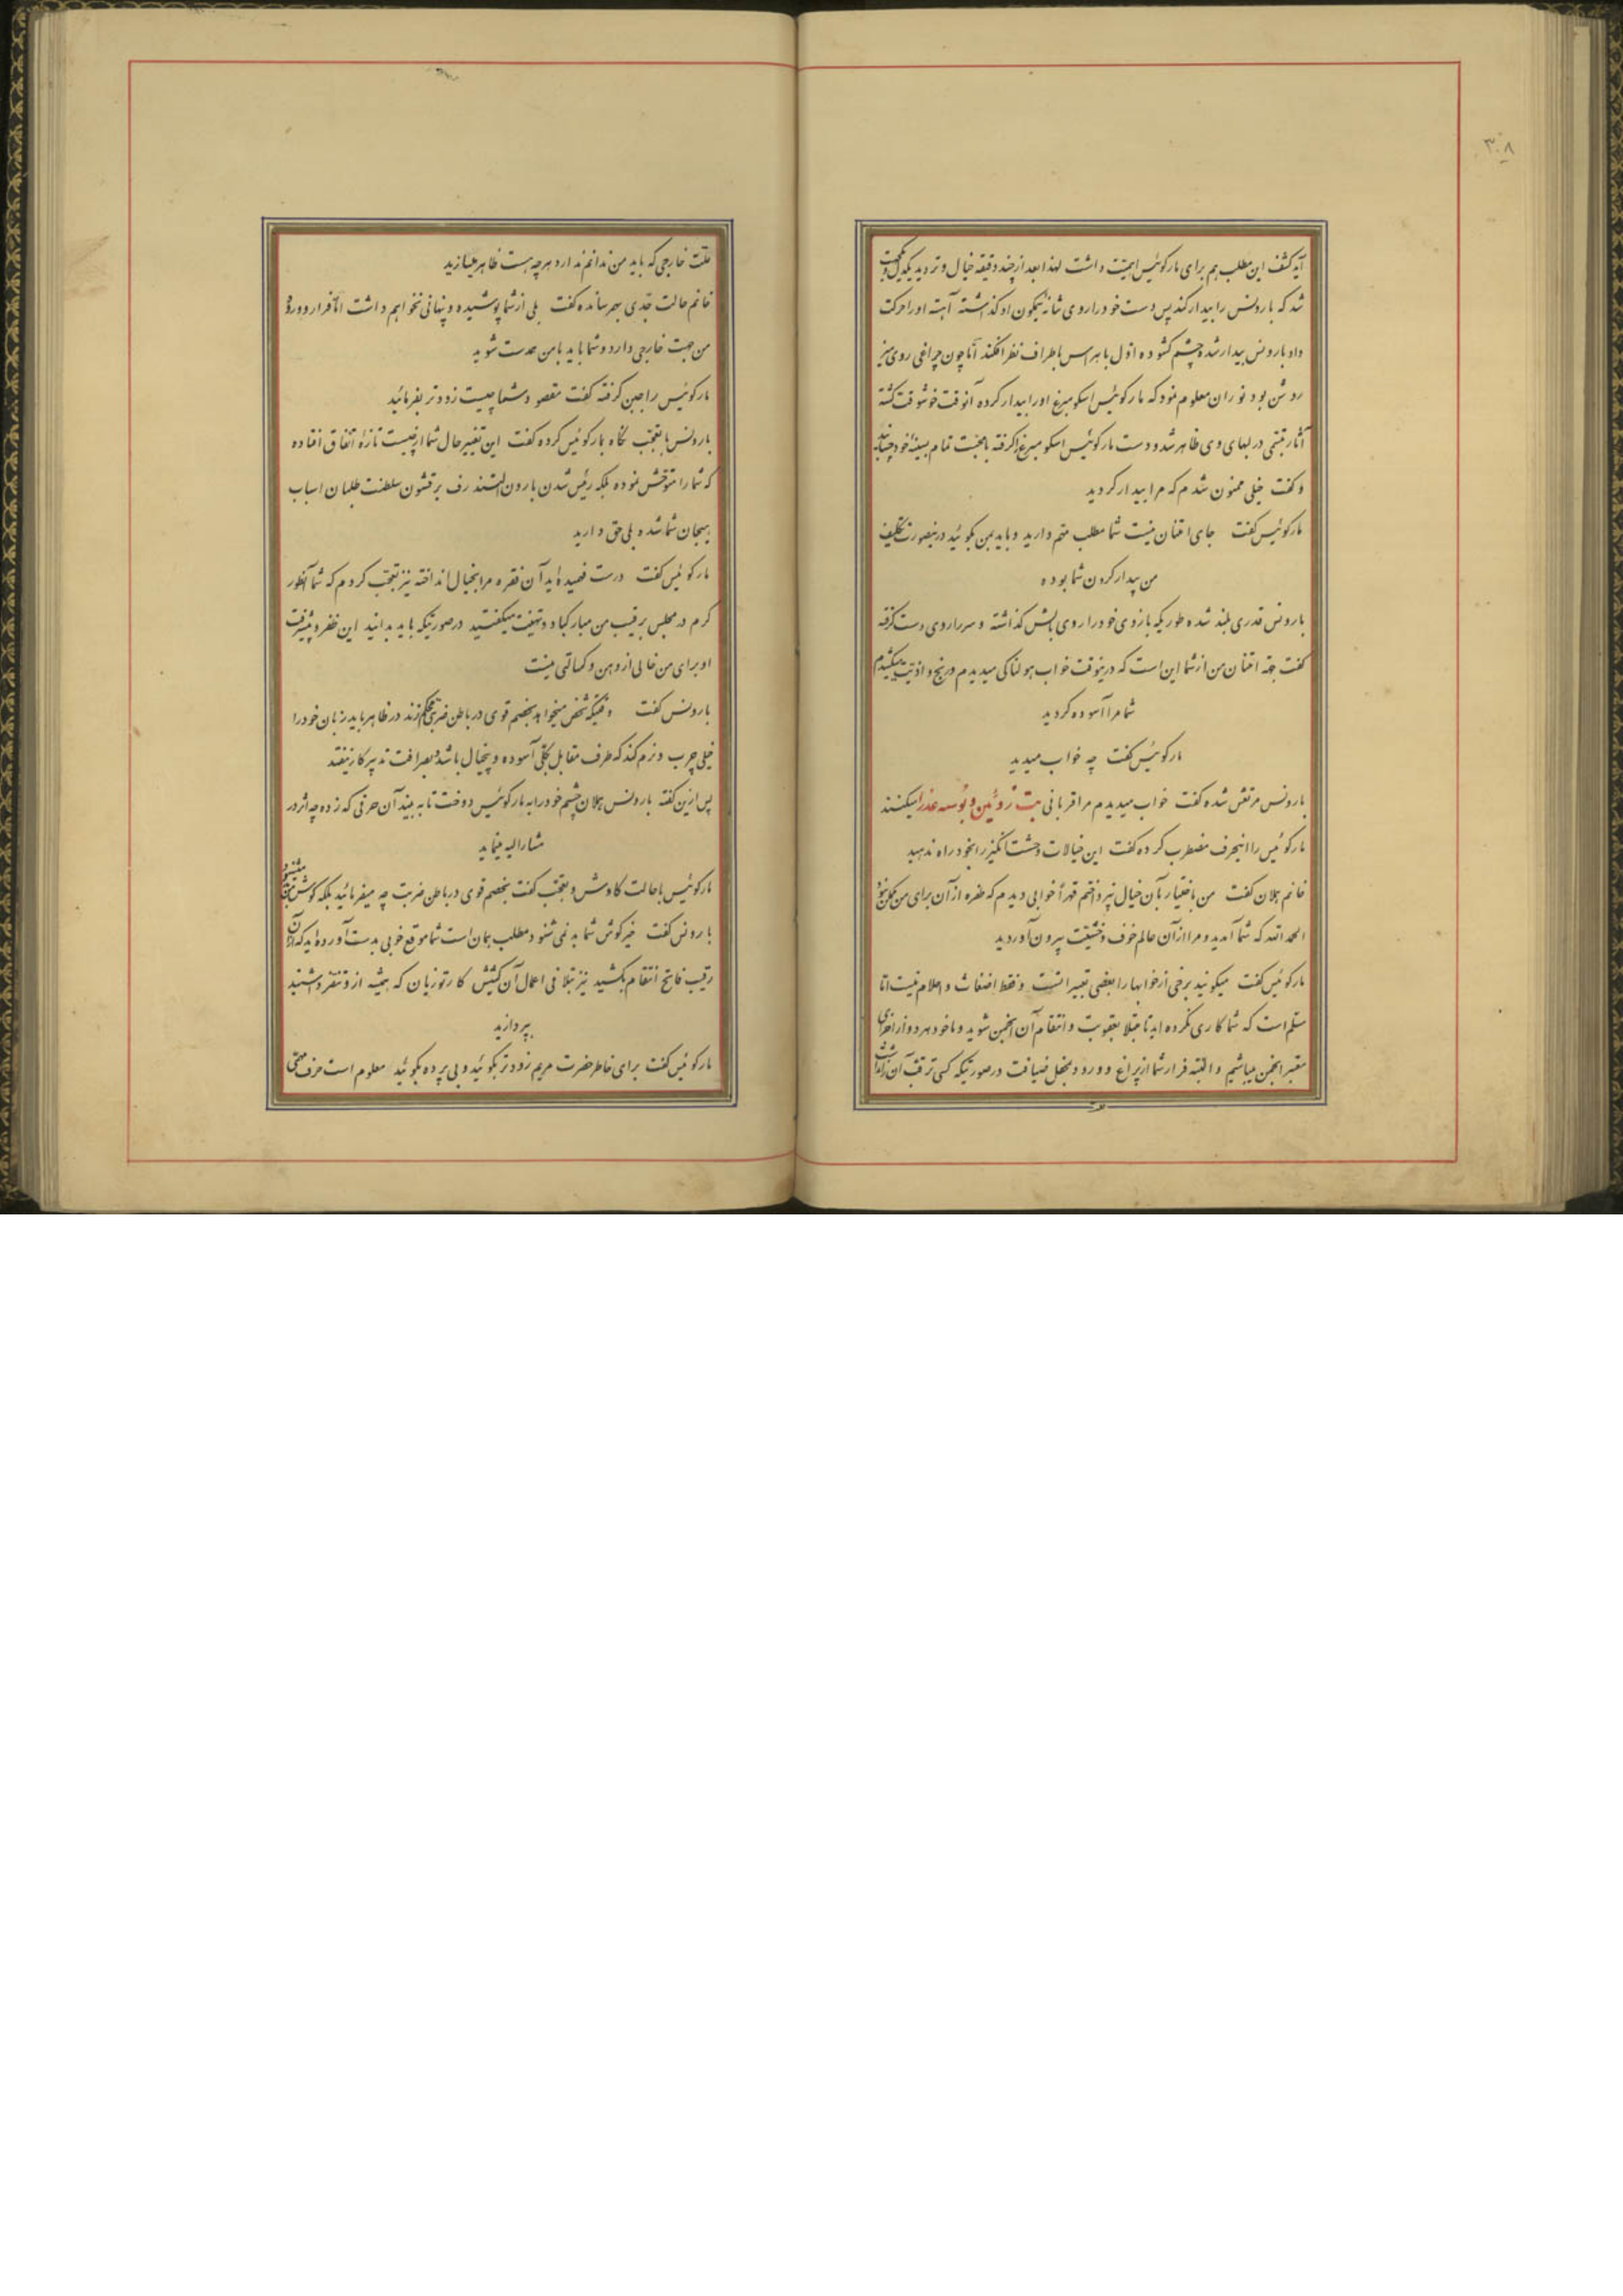 ۳۰۸
آید کشف این مطلب هم برای مارکوئیس اهمیت داشت لهذا بعد از چند دقیقه خیال و تردید یکدل و یکجهت
شد که بارونس را بیدار کند پس دست خود را روی شانه نیکون او گذاشته آهسته او را حرکت
داد بارونس بیدار شد و چشم گشوده اول با هراس باطراف نظر افکند اما چون چراغی روی میز
روشن بود نوران معلوم نمود که مارکوئیس اسکومبرغ او را بیدار کرده آنوقت خوشوقت گشته
آثار تبسمی در لبهای وی ظاهر شد و دست مارکوئیس اسکومبرغ را گرفته با محبت تمام بسینه خود چسبانید
و گفت خیلی ممنون شدم که مرا بیدار کردید
مارکوئیس گفت جای امتنان نیست شما مطلب مهم دارید و باید بمن بگوئید درینصورت تکلیف
من بیدار کردن شما بوده
بارونس قدری بلند شده طوریکه بازوی خود را روی بالش گذاشته و سر را روی دست گرفته
گفت جهة امتنان من از شما این است که درینوقت خواب هولناکی میدیدم و رنج و اذیت میکشیدم
شما مرا آسوده کردید
مارکوئیس گفت چه خواب میدید
بارونس مرتعش شده گفت خواب میدیدم مرا قربانی بت روئین و بوسه عذرا میکنند
مارکوئیس را اینحرف مضطرب کرده گفت این خیالات وحشت انگیز را بخود راه ندهید
خانم هملان گفت من باختیار بآن خیال نپرداختم قهراً خوابی دیدم که طفره از آن برای من ممکن نبود
الحمد الله که شما آمدید و مرا از آن عالم خوف و خشیت بیرون آوردید
مارکوئیس گفت میگویند برخی از خوابها را بعضی تعبیرات است و فقط اضغاث و احلام نیست اما
مسلم است که شما کاری نکرده اید تا مبتلا بعقوبت و انتقام آن انجمن شوید و ما خود هر دو از اجزای
معتبر انجمن میباشیم و البته فرار شما از پراغ و ورود بمحل ضیافت در صورتیکه کسی ترقب آن را نداشت
علت خارجی که باید من ندانم ندارد هر چه هست ظاهر سازید
خانم حالت جدی بهم رسانده گفت بلی از شما پوشیده و پنهانی نخواهم داشت البته فرار و ورود
من جهت خارجی دارد و شما باید با من همدست شوید
مارکوئیس را جبن گرفته گفت مقصود شما چیست زودتر بفرمائید
بارونس با تعجب نگاه بمارکوئیس کرده گفت این تغییر حال شما از چیست تازهٔ اتفاق افتاده
که شما را متوحش نموده بلکه رئیس شدن بارون التندرف بر قشون سلطنت طلبان اسباب
هیجان شما شده بلی حق دارید
مارکوئیس گفت درست فهمیده اید آن فقره مرا بخیال انداخته نیز تعجب کردم که شما آنطور
گرم در مجلس برقیب من مبارکباد و تهنیت میگفتید در صورتیکه باید بدانید این ظفر و پیشرفت
او برای من خالی از وهن و کسالتی نیست
بارونس گفت وقتیکه شخص میخواهد بخصم قوی در باطن ضربتی محکم زند در ظاهر باید زبان خود را
خیلی چرب و نرم کند که طرف مقابل بکلی آسوده و بیخیال باشد و بصرافت تدبیر کار نیفتد
پس ازین گفته بارونس هملان چشم خود را به مارکوئیس دوخت تا ببیند آن حرفی که زده چه اثر در
مشارالیه مینماید
مارکوئیس با حالت کاوش و تعجب گفت بخصم قوی در باطن ضربت چه میفرمائید بلکه گوش من میشنود
بارونس گفت خیر گوش شما بد نمی شنود مطلب همان است شما موقع خوبی بدست آورده اید که از آن
رقیب فاتح انتقام بکشید نیز بتلافی اعمال آن کشیش کارتوزیان که همیشه از او تنفر داشتید
بپردازید
مارکوئیس گفت برای خاطر حضرت مریم زودتر بگوئید و بی پرده بگوئید معلوم است حرف مهمی